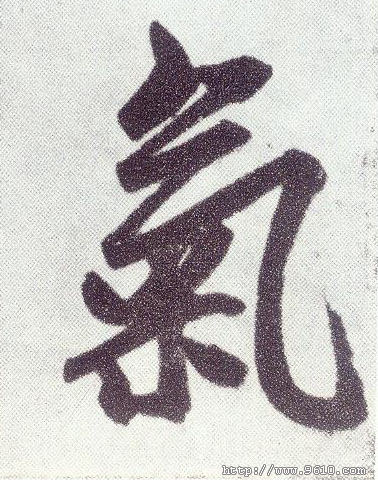 氣
http://www.9610.com